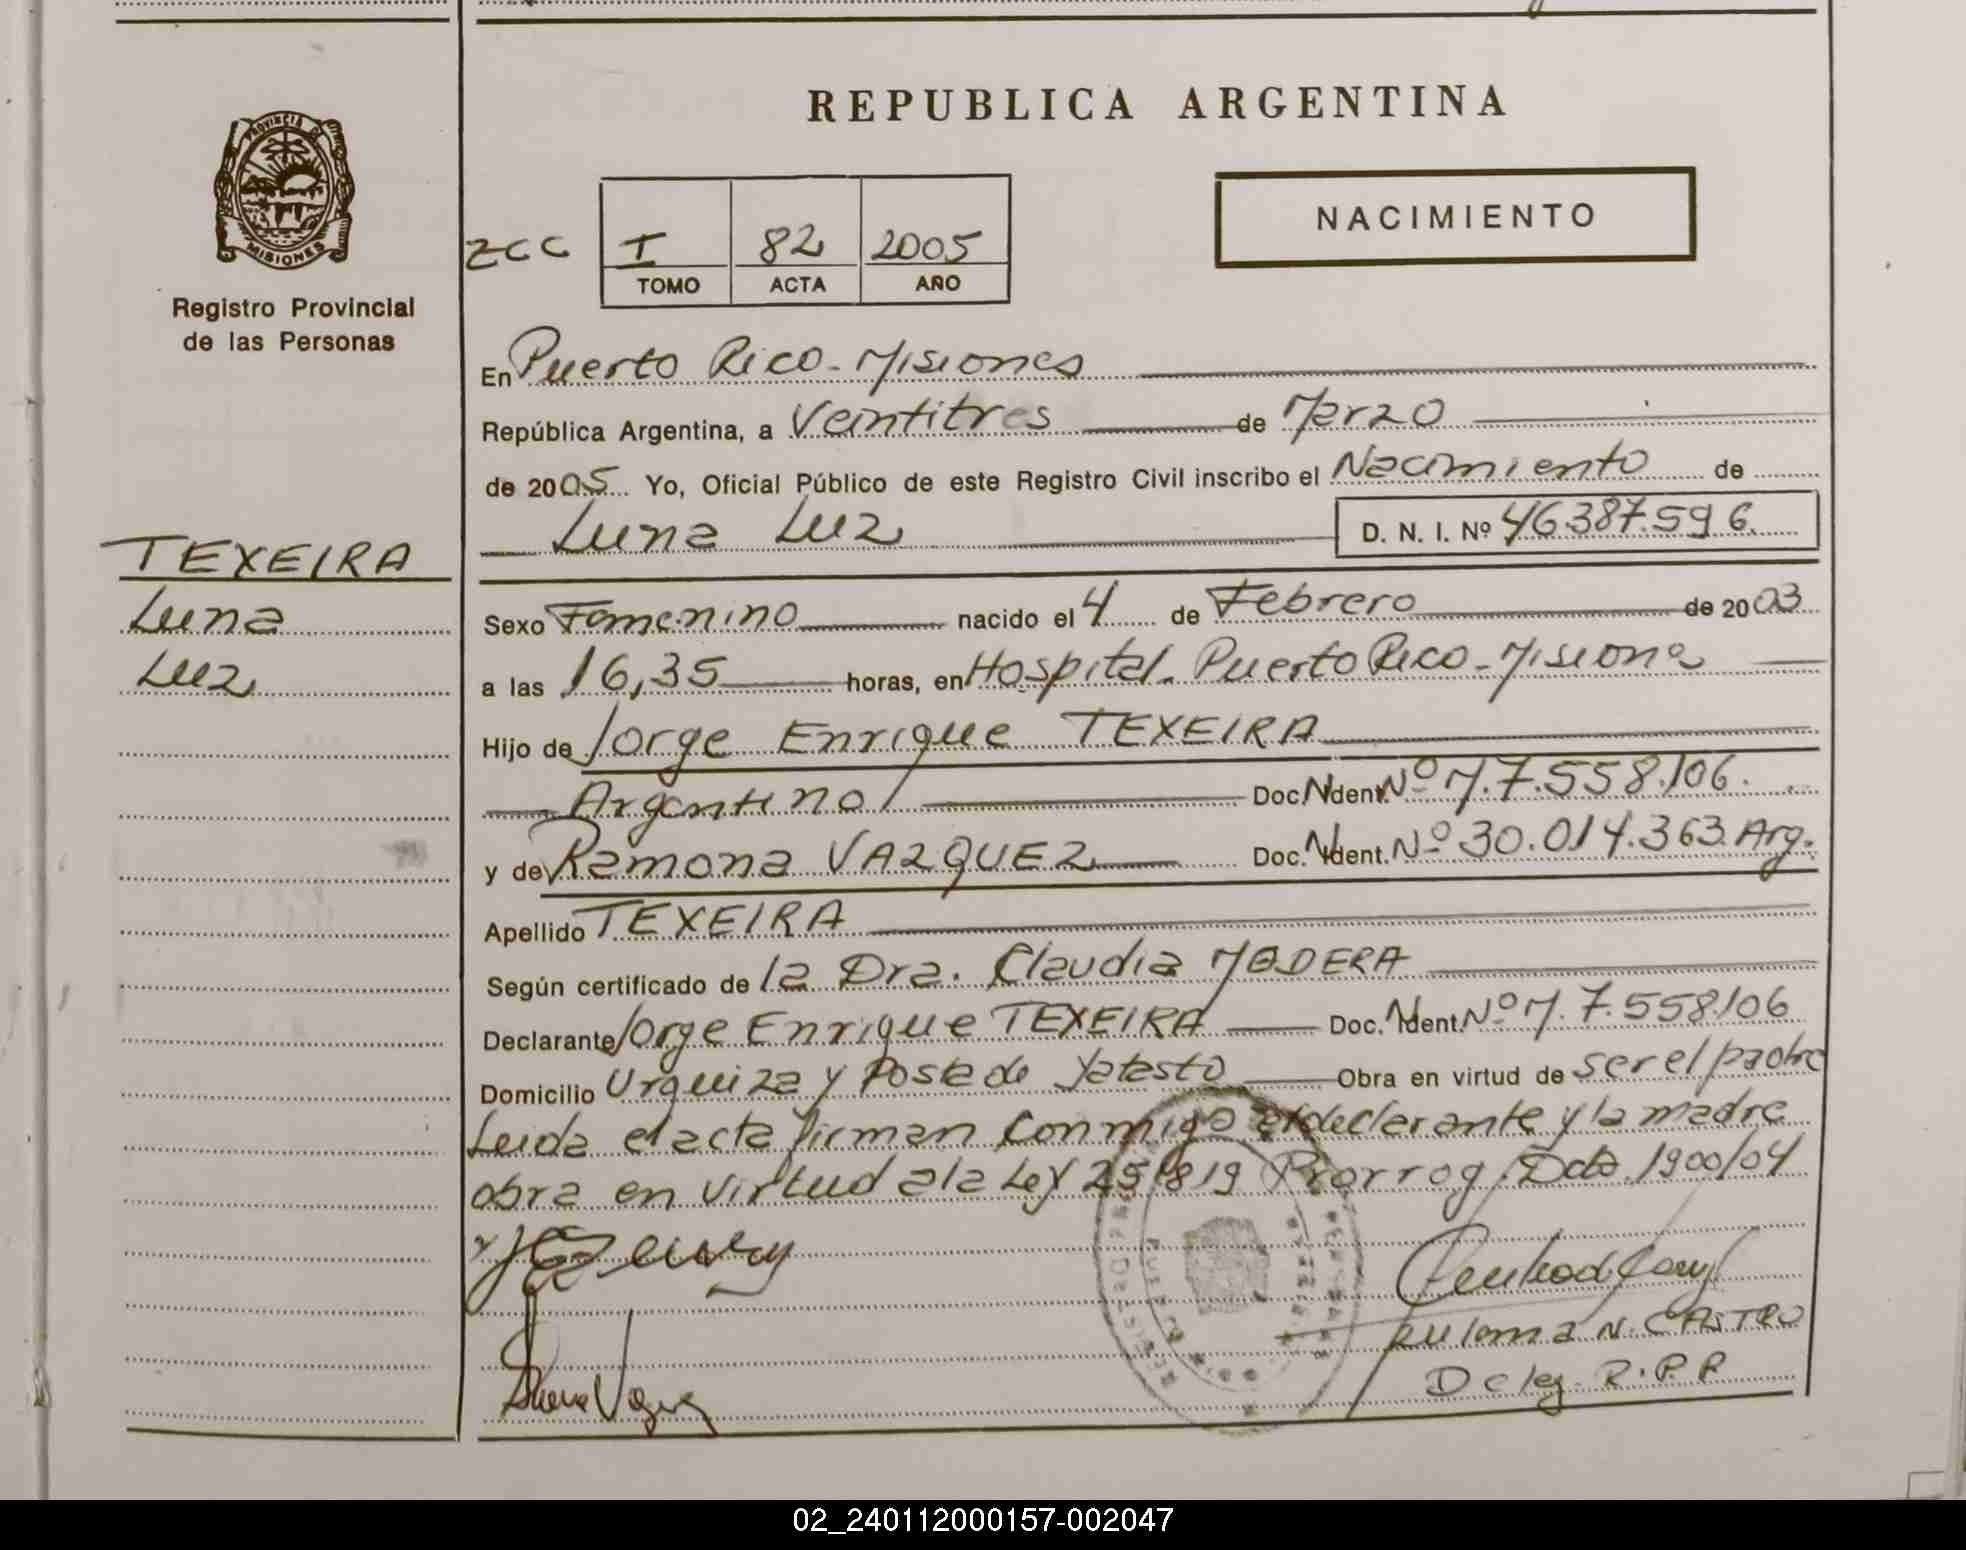 REPUBLICA ARGENTINA
PROVINCIA DE
MISIONES
Registro Provincial
de las Personas
NACIMIENTO
ZCC I 82 2005
TOMO ACTA AÑO
En Puerto Rico - Misiones
República Argentina, a Veintitres de Marzo
de 2005 Yo, Oficial Público de este Registro Civil inscribo el Nacimiento de
Luna Luz D. N. I. Nº 46387.596
TEXEIRA
Luna
Luz
Sexo Femenino nacido el 4 de Febrero de 2003
a las 16,35 horas, en Hospital - Puerto Rico - Misiones
Hijo de Jorge Enrique TEXEIRA
Argentino Doc. Ident. Nº M. 7.558.106.
y de Ramona VAZQUEZ Doc. Ident. Nº 30.014.363 Arg.
Apellido TEXEIRA
Según certificado de la Dra. Claudia MADERA
Declarante Jorge Enrique TEXEIRA Doc. Ident. Nº M. 7.558.106
Domicilio Urquiza y Posta de Yatasto Obra en virtud de ser el padre
Leida el acta firman conmigo el declarante y la madre
obra en virtud a la Ley 25819 Prorrog. Dcto 1900/04
N. CASTRO
Deleg. R.P.P
02_240112000157-002047